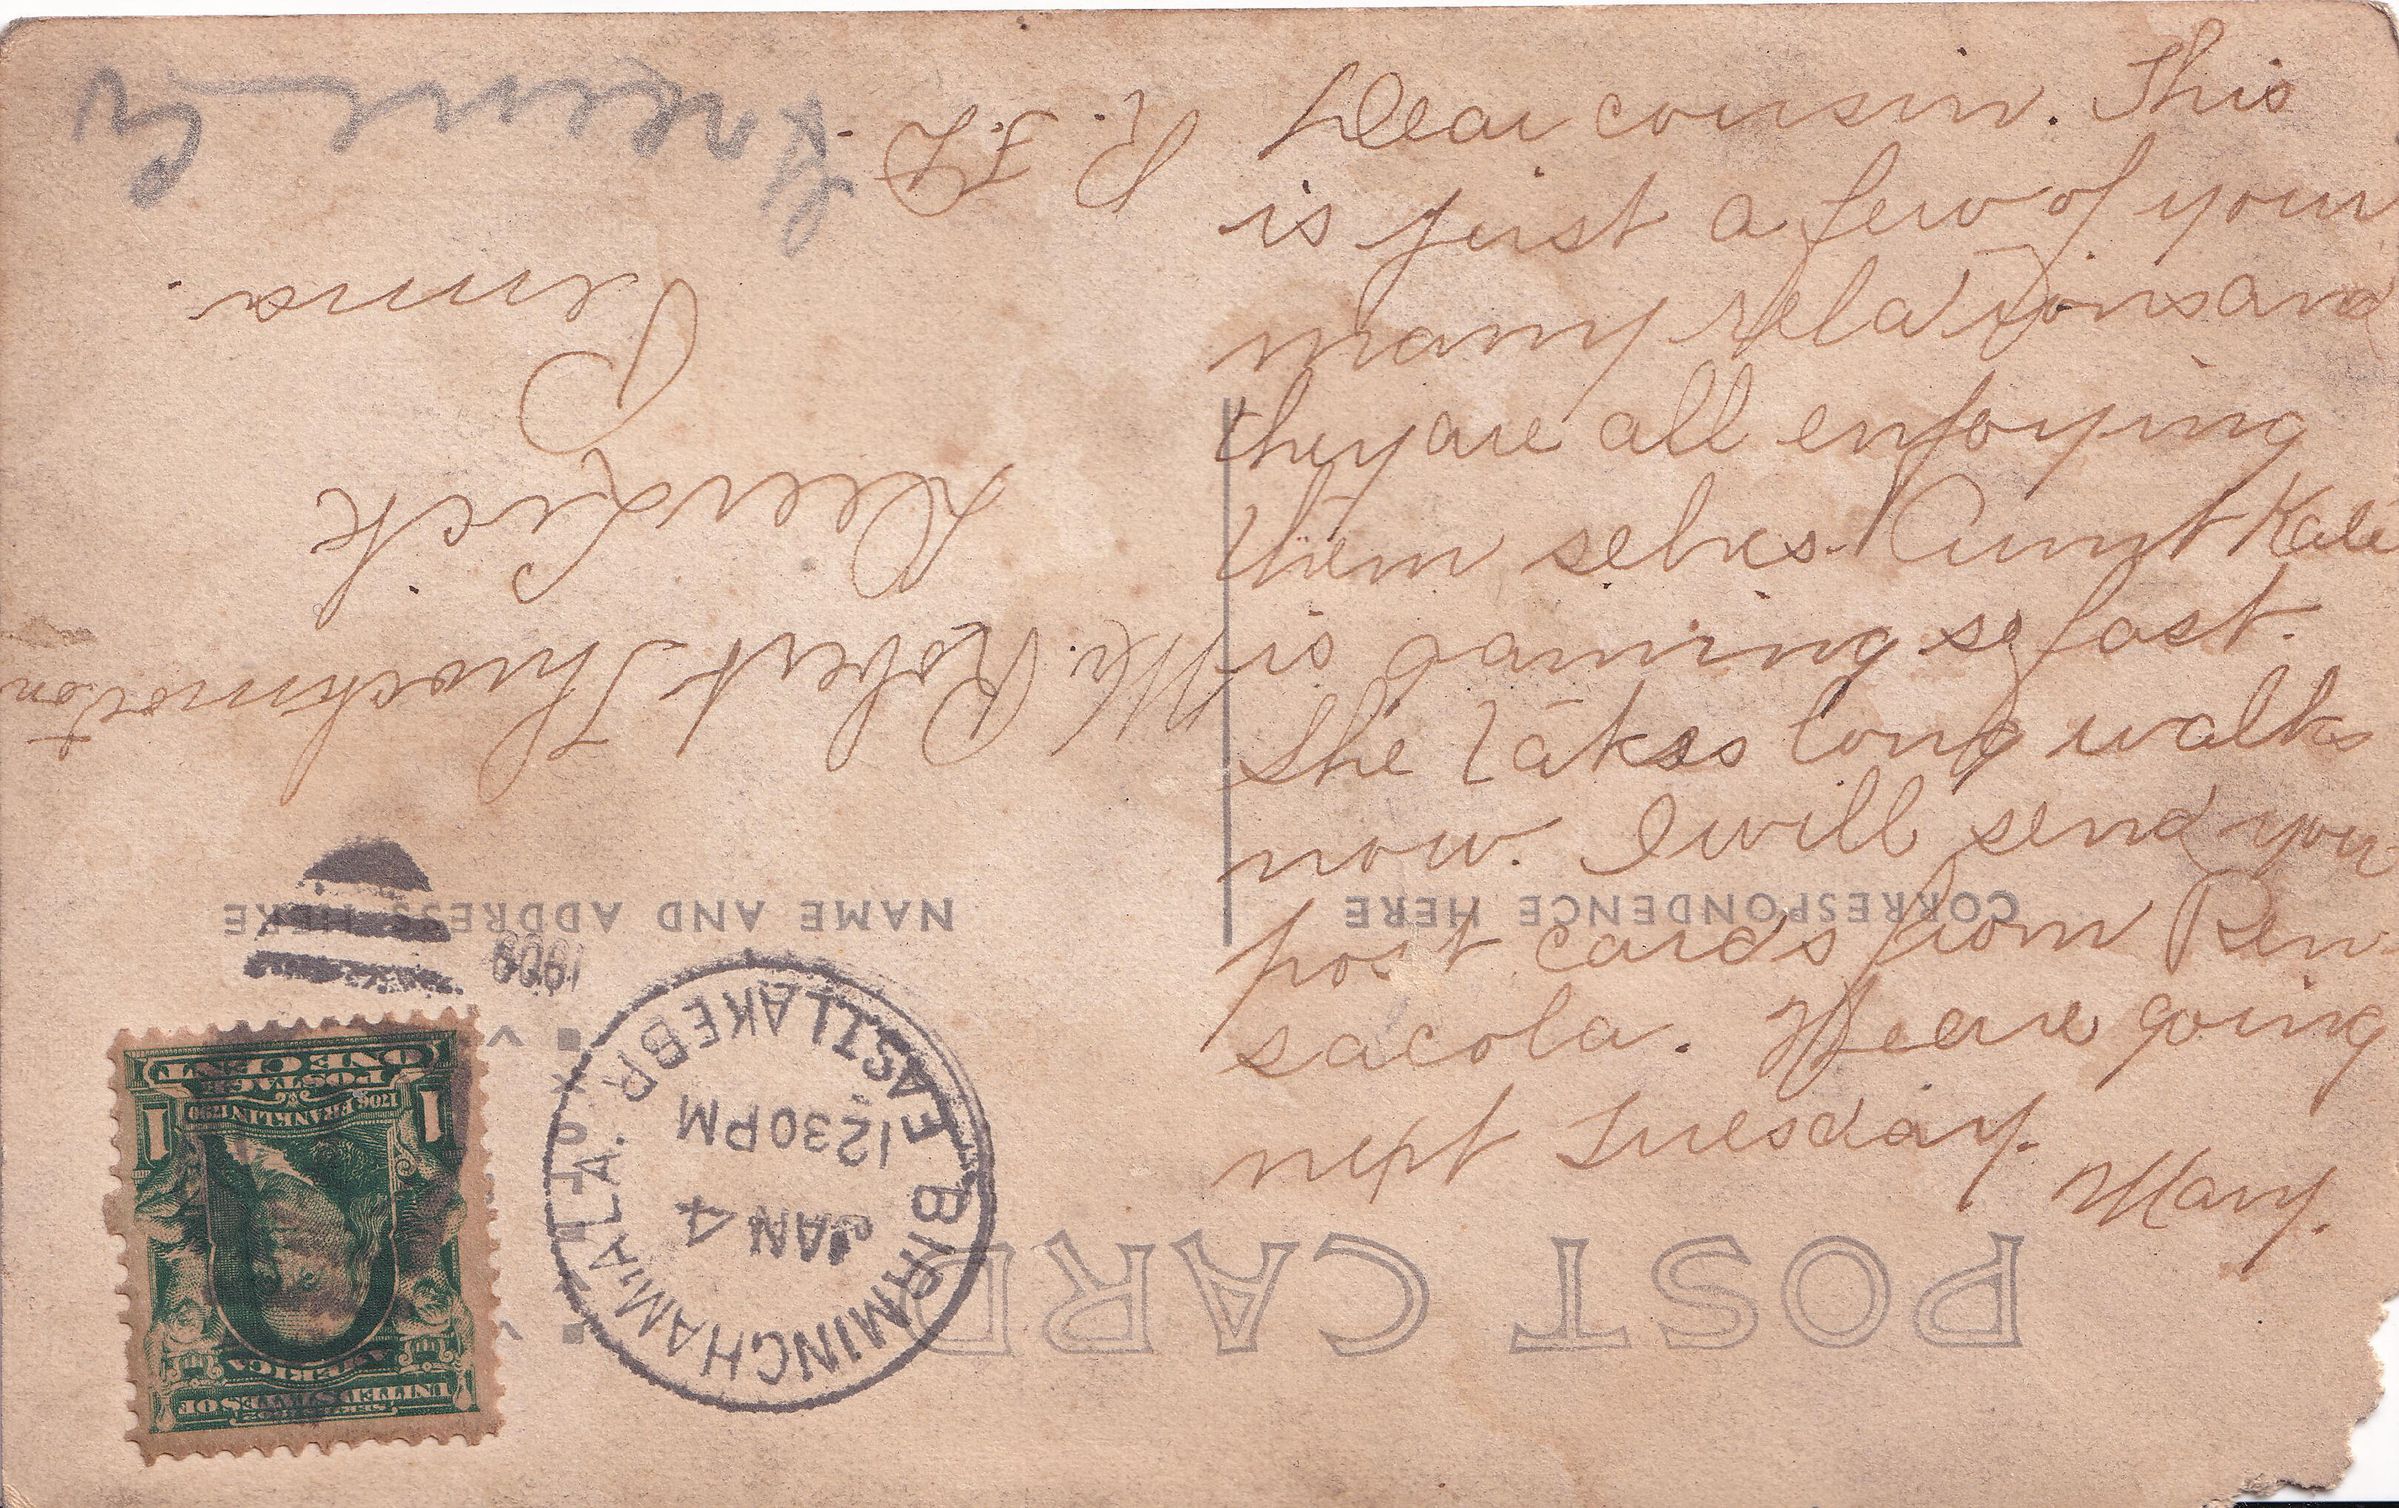 Dear cousin. This
is just a few of your
many relations and
they are all enjoying
them selves. Aunt Kate
is gaining so fast.
She takes long walks
now. I will send you
post cards from Pen
sacola. We are going
next Tuesday.
Mary.
POST CARD
CORRESPONDENCE HERE
NAME AND ADDRESS HERE
BIRMINGHAM, ALA.
EAST LAKE BR.
JAN 4
1230PM
1909
SERIES 1902
UNITED STATES OF
AMERICA
1706 FRANKLIN 1790
POSTAGE
ONE CENT
1 1
Mr. Robert Throckmorton
Lick
Penna.
R. F. D.